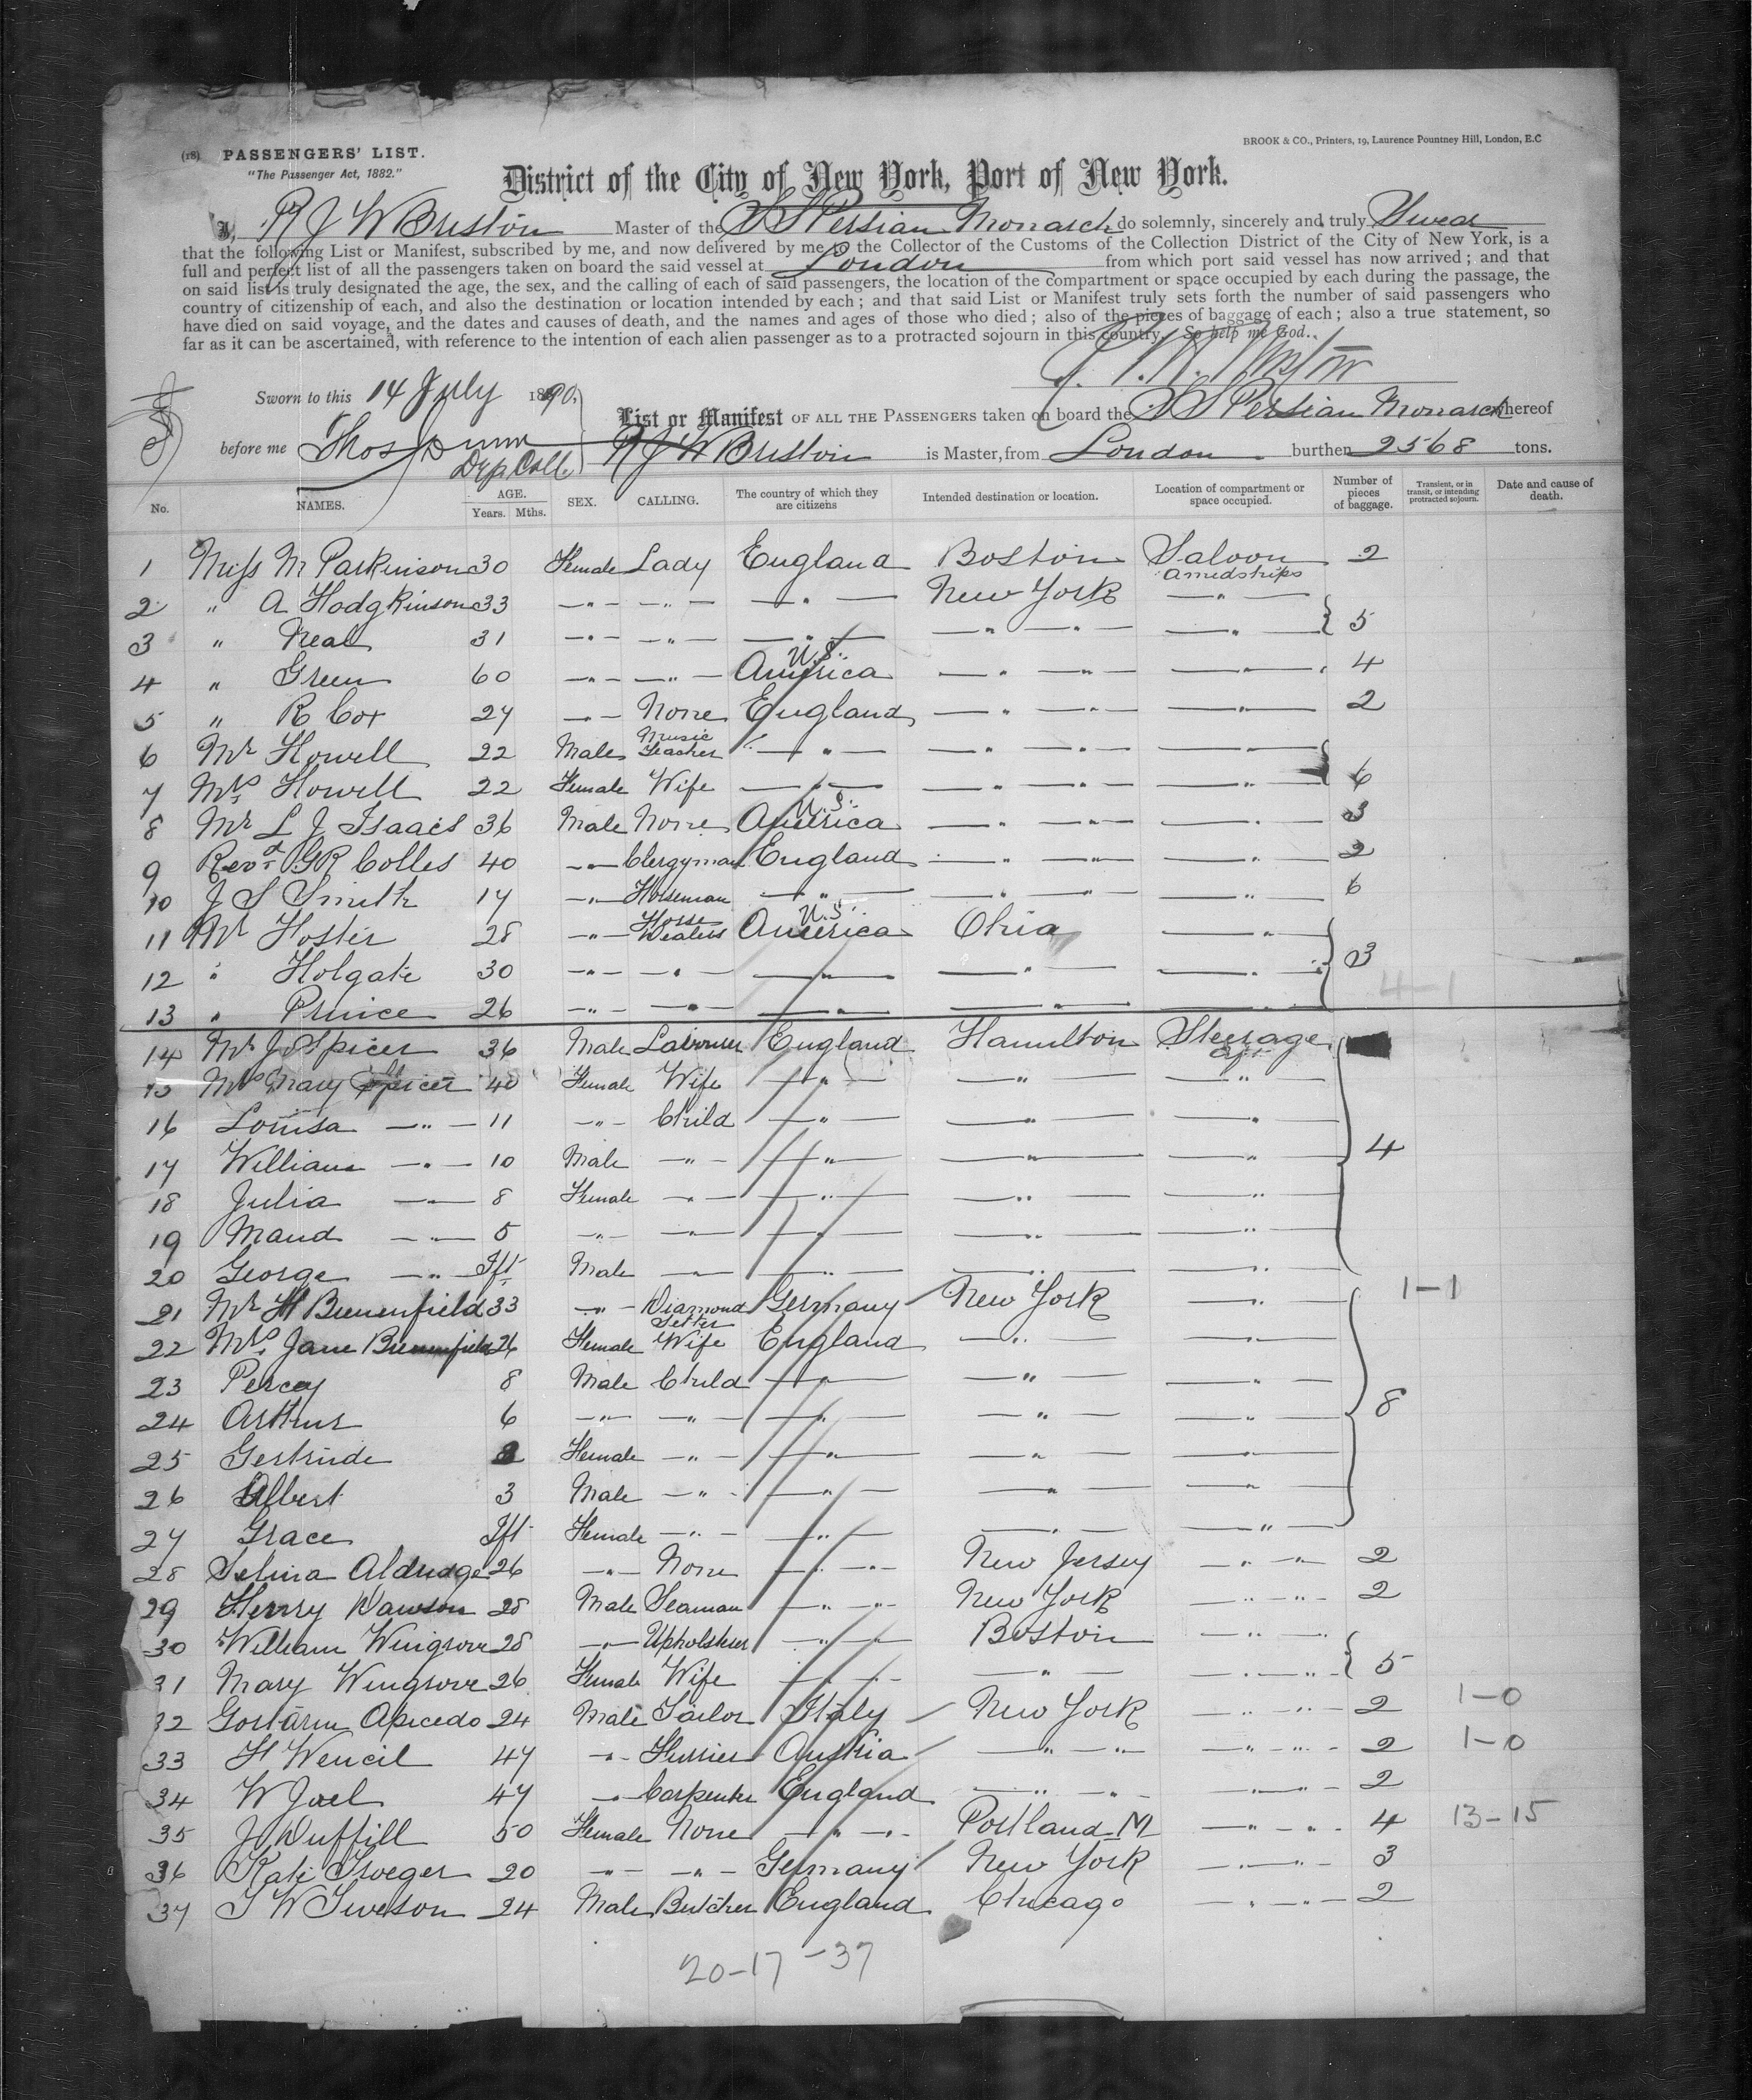 BROOK & CO., Printers, 19, Laurence Pountney Hill, London, E.C
(18) PASSENGERS' LIST.
"The Passenger Act, 1882."
District of the City of New York, Port of New York.
I, R J W Bristow Master of the S S Persian Monarch do solemnly, sincerely and truly Swear
that the following List or Manifest, subscribed by me, and now delivered by me to the Collector of the Customs of the Collection District of the City of New York, is a
full and perfect list of all the passengers taken on board the said vessel at London from which port said vessel has now arrived; and that
on said list is truly designated the age, the sex, and the calling of each of said passengers, the location of the compartment or space occupied by each during the passage, the
country of citizenship of each, and also the destination or location intended by each; and that said List or Manifest truly sets forth the number of said passengers who
have died on said voyage, and the dates and causes of death, and the names and ages of those who died; also of the pieces of baggage of each; also a true statement, so
far as it can be ascertained, with reference to the intention of each alien passenger as to a protracted sojourn in this country. So help me God.
Sworn to this 14 July 1890.
List or Manifest OF ALL THE PASSENGERS taken on board the S S Persian Monarch whereof
before me Thos Dunn R J W Bristow is Master, from London burthen 2568 tons.
Dep Coll
No. NAMES. AGE. Years. Mths. SEX. CALLING. The country of which they are citizens Intended destination or location. Location of compartment or space occupied. Number of pieces of baggage. Transient, or in transit, or intending protracted sojourn. Date and cause of death.
1 Miss M Parkinson 30 Female Lady England Boston Saloon amidships 2
2 " A Hodgkinson 33 " " " New York "
3 " Neal 31 " " " " " " 5
4 " Green 60 " " U.S. America " " " 4
5 " R Cox 27 " None England " " " 2
6 Mr Howell 22 Male Music Teacher " " " "
7 Mrs Howell 22 Female Wife " " " " 6
8 Mr L J Isaacs 36 Male None U.S. America " " " 3
9 Revd G R Colles 40 " Clergyman England " " " 2
10 J S Smith 17 " Horseman " " " " 6
11 Mr Foster 28 " Horse Dealers U.S. America Ohio "
12 " Holgate 30 " " " " " 3
13 " Prince 26 " " " " " 4-1
14 Mr J Spicer 36 Male Labourer England Hamilton Steerage aft
15 Mrs Mary Spicer 40 Female Wife " " "
16 Louisa " 11 " Child " " "
17 William " 10 Male " " " " 4
18 Julia " 8 Female " " " "
19 Maud " 5 " " " " "
20 George " Ift Male " " " "
21 Mr H Brunenfield 33 " Diamond Setter Germany New York " 1-1
22 Mrs Jane Brunenfield 26 Female Wife England " "
23 Percy 8 Male Child " " "
24 Arthur 6 " " " " " 8
25 Gertrude Female " " " "
26 Albert 3 Male " " " "
27 Grace Ift Female " " " "
28 Selina Aldridge 26 " None " " New Jersey " " 2
29 Henry Dawson 28 Male Seaman " " New York " " 2
30 William Wingrove 28 " Upholsterer " Boston " "
31 Mary Wingrove 26 Female Wife " " " " " 5
32 Apicedo 24 Male Tailor Italy New York " " 2 1-0
33 H Wencil 47 " Furrier Austria " " " " 2 1-0
34 W Joel 47 " Carpenter England " " " 2
35 J Duffill 50 Female None " " Portland M " " 4 13-15
36 Kate Troeger 20 " " Germany New York " " 3
37 Iveson 24 Male Butcher England Chicago " " 2
20-17-37